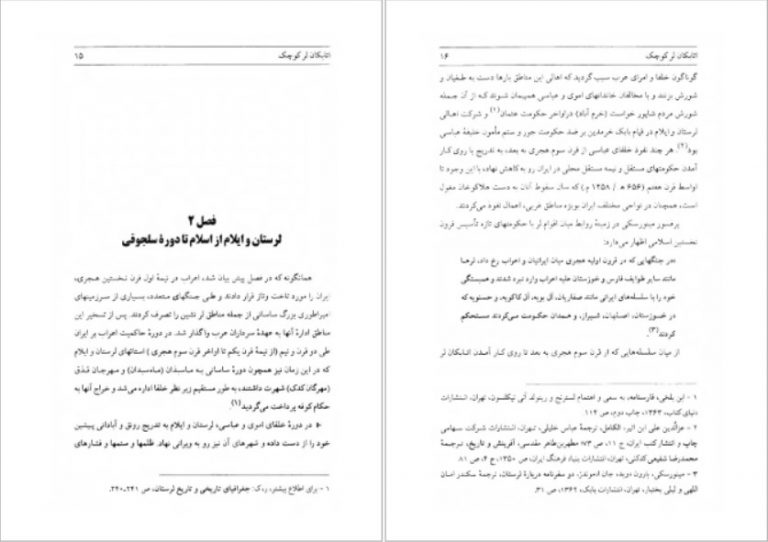 اتابکان لر کوچک ۱۵
فصل ۲
لرستان و ایلام از اسلام تا دورۀ سلجوقی
همانگونه که در فصل پیش بیان شد، اعراب در نیمۀ اول قرن نخستین هجری،
ایران را مورد تاخت وتاز قرار دادند و طی جنگهای متعدد، بسیاری از سرزمینهای
امپراطوری بزرگ ساسانی از جمله مناطق لر نشین را تصرف کردند. پس از تسخیر این
مناطق ادارۀ آنها به عهدۀ سرداران عرب واگذار شد. در دورۀ حاکمیت اعراب بر ایران
طی دو قرن و نیم (از نیمۀ قرن یکم تا اواخر قرن سوم هجری) استانهای لرستان و ایلام
که در این زمان نیز همچون دورۀ ساسانی به ماسبذان (ماه‌سبدان) و مهرجان قذق
(مهرگان کدک) شهرت داشتند، به طور مستقیم زیر نظر خلفا اداره می‌شد و خراج آنها به
حکام کوفه پرداخت می‌گردید (۱).
در دورۀ خلفای اموی و عباسی، لرستان و ایلام به تدریج رونق و آبادانی پیشین
خود را از دست داده و شهرهای آن نیز رو به ویرانی نهاد. ظلمها و ستمها و فشارهای
۱ - برای اطلاع بیشتر، ر.ک: جغرافیای تاریخی و تاریخ لرستان، ص ۲۴۱-۲۴۰.
اتابکان لر کوچک ۱۶
گوناگون خلفا و امرای عرب سبب گردید که اهالی این مناطق بارها دست به طغیان و
شورش بزنند و با مخالفان خاندانهای اموی و عباسی همپیمان شوند که از آن جمله
شورش مردم شاپور خواست (خرم آباد) دراواخر حکومت عثمان (۱) و شرکت اهالی
لرستان و ایلام در قیام بابک خرمدین بر ضد حکومت جور و ستم مأمون خلیفۀ عباسی
بود (۲). هر چند نفوذ خلفای عباسی از قرن سوم هجری به بعد، به تدریج با روی کار
آمدن حکومتهای مستقل و نیمه مستقل محلی در ایران رو به کاهش نهاد، با این وجود تا
اواسط قرن هفتم (۶۵۶ هـ / ۱۲۵۸ م) که سال سقوط آنان به دست هلاکوخان مغول
است، همچنان در نواحی مختلف ایران بویژه مناطق غربی، اعمال نفوذ می‌کردند.
پرفسور مینورسکی در زمینۀ روابط میان اقوام لر با حکومتهای تازه تأسیس قرون
نخستین اسلامی اظهار می‌دارد:
«در جنگهایی که در قرون اولیه هجری میان ایرانیان و اعراب رخ داد، لرها
مانند سایر طوایف فارس و خوزستان علیه اعراب وارد نبرد شدند و همبستگی
خود را با سلسله‌های ایرانی مانند صفاریان، آل بویه، آل کاکویه، و حسنویه که
در خوزستان، اصفهان، شیراز، و همدان حکومت می‌کردند مستحکم
کردند» (۳).
از میان سلسله‌هایی که از قرن سوم هجری به بعد تا روی کار آمدن اتابکان لر
۱ - ابن بلخی، فارسنامه، به سعی و اهتمام لسترنج و رینولد آلن نیکلسون، تهران، انتشارات
دنیای کتاب، ۱۳۶۳، چاپ دوم، ص ۱۱۴
۲ - عزالدین علی ابن اثیر، الکامل، ترجمۀ عباس خلیلی، تهران، انتشارات شرکت سهامی
چاپ و انتشار کتب ایران، ج ۱۱، ص ۷۳؛ مطهربن‌طاهر مقدسی، آفرینش و تاریخ، ترجمۀ
محمدرضا شفیعی‌کدکنی، تهران، انتشارات بنیاد فرهنگ ایران، ص ۱۳۵۰، ج ۴، ص ۸۱
۳ - مینورسکی، بارون دوبد، جان ادموندز، دو سفرنامه دربارۀ لرستان، ترجمۀ سکندر امان
اللهی و لیلی بختیار، تهران، انتشارات بابک، ۱۳۶۲، ص ۳۱.